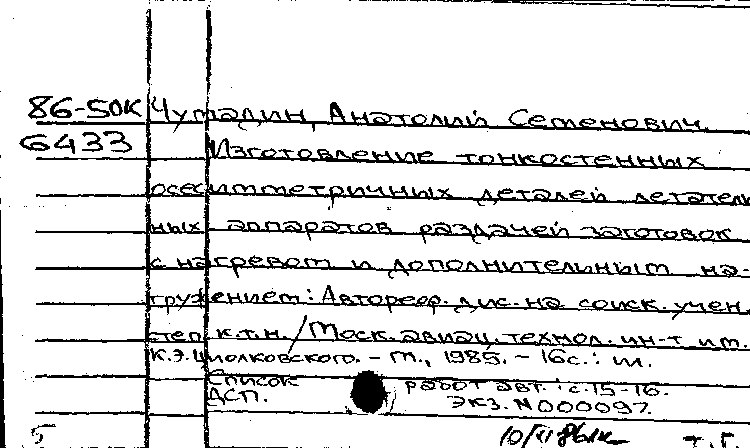 86-50К Чумадин, Анатолий Семенович.
6433 Изготовление тонкостенных
осесимметричных деталей летатель
ных аппаратов раздачей заготовок
с нагревом и дополнительным на-
гружением: Автореф. дис. на соиск. учен.
степ. к.т.н. / Моск. авиац. технол. ин-т им.
К.Э. Циолковского. - М., 1985. - 16с.: ил.
Список работ авт.: с.15-16.
ДСП. Экз. N000097.
5